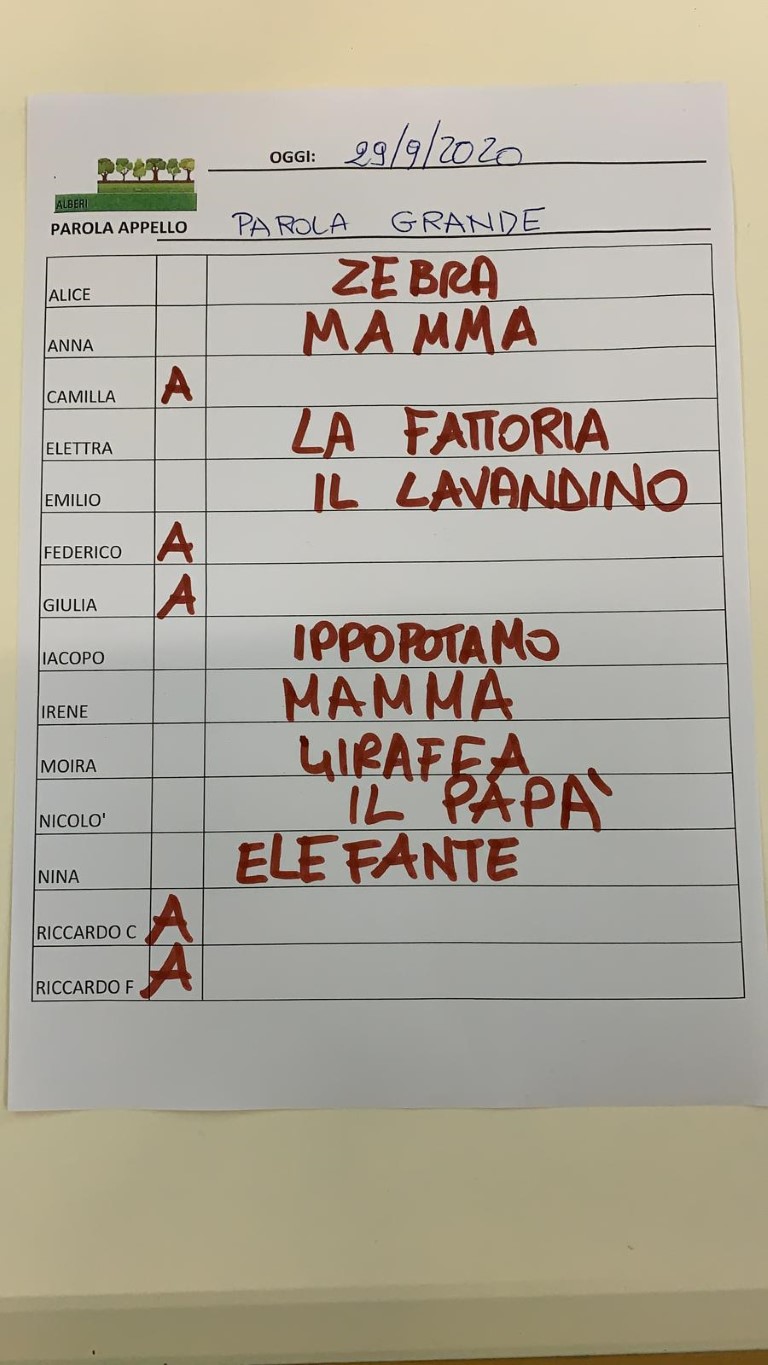 OGGI: 29/9/2020
ALBERI
PAROLA APPELLO PAROLA GRANDE
ALICE ZEBRA
ANNA MAMMA
CAMILLA A
ELETTRA LA FATTORIA
EMILIO IL LAVANDINO
FEDERICO A
GIULIA A
IACOPO IPPOPOTAMO
IRENE MAMMA
MOIRA GIRAFFA
NICOLO' IL PAPÀ
NINA ELEFANTE
RICCARDO C A
RICCARDO F A